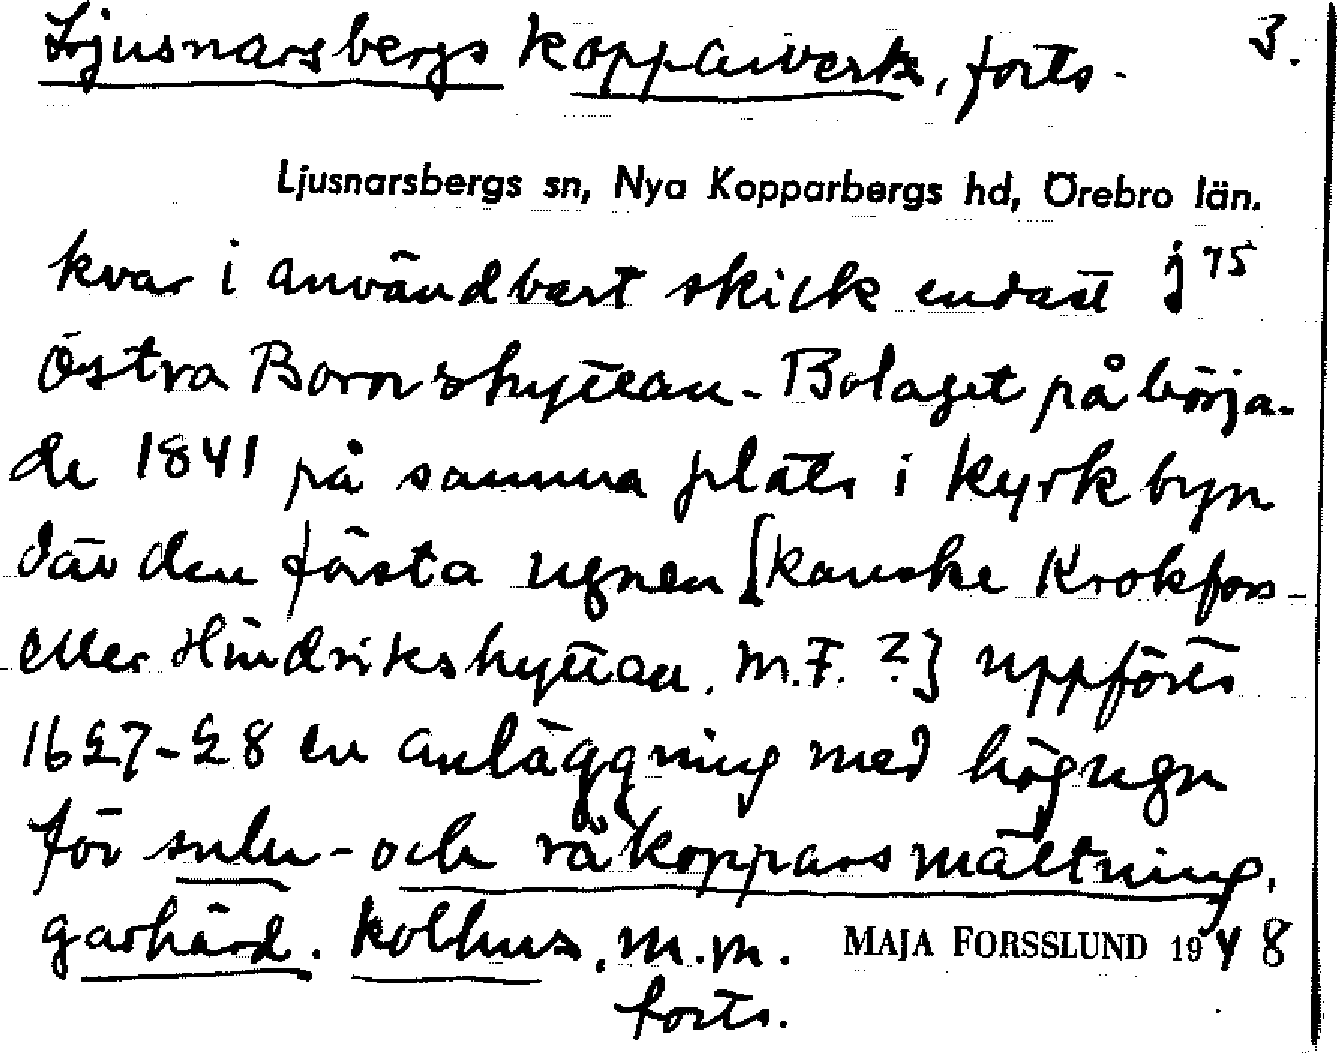 Ljusnarsbergs Kopparverk, forts.
3.
Ljusnarsbergs sn, Nya Kopparbergs hd, Örebro län.
kvar i användbart skick endast j 75
Östra Bornshyttan. Bolaget påbörja-
de 1841 på samma plats i Kyrkbyn
där den första ugnen [kanske Krokfors-
eller Hindrikshyttan. M.F. ?] uppförts
1627-28 en anläggning med högugn
för sulu- och råkopparsmältning,
garhärd. kolhus, m.m.
MAJA FORSSLUND 1948
forts.